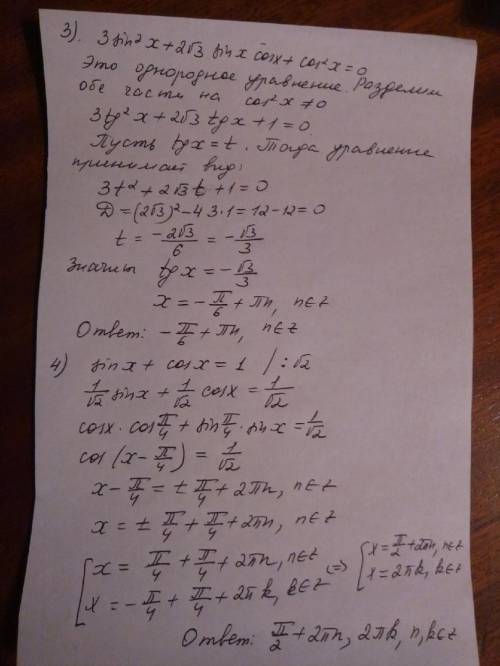 3). 3 sin² x + 2√3 sin x cos x + cos² x = 0
Это однородное уравнение. Разделим
обе части на cos² x ≠ 0
3 tg² x + 2√3 tg x + 1 = 0
Пусть tg x = t. Тогда уравнение
принимает вид:
3t² + 2√3 t + 1 = 0
D = (2√3)² - 4·3·1 = 12 - 12 = 0
t = -2√3/6 = -√3/3
Значит tg x = -√3/3
x = -π/6 + πn, n∈Z
Ответ: -π/6 + πn, n∈Z
4) sin x + cos x = 1 / :√2
1/√2 sin x + 1/√2 cos x = 1/√2
cos x · cos π/4 + sin π/4 · sin x = 1/√2
cos (x - π/4) = 1/√2
x - π/4 = ± π/4 + 2πn, n∈Z
x = ± π/4 + π/4 + 2πn, n∈Z
[ x = π/4 + π/4 + 2πn, n∈Z => [ x = π/2 + 2πn, n∈Z
x = -π/4 + π/4 + 2πk, k∈Z x = 2πk, k∈Z
Ответ: π/2 + 2πn, 2πk, n,k∈Z